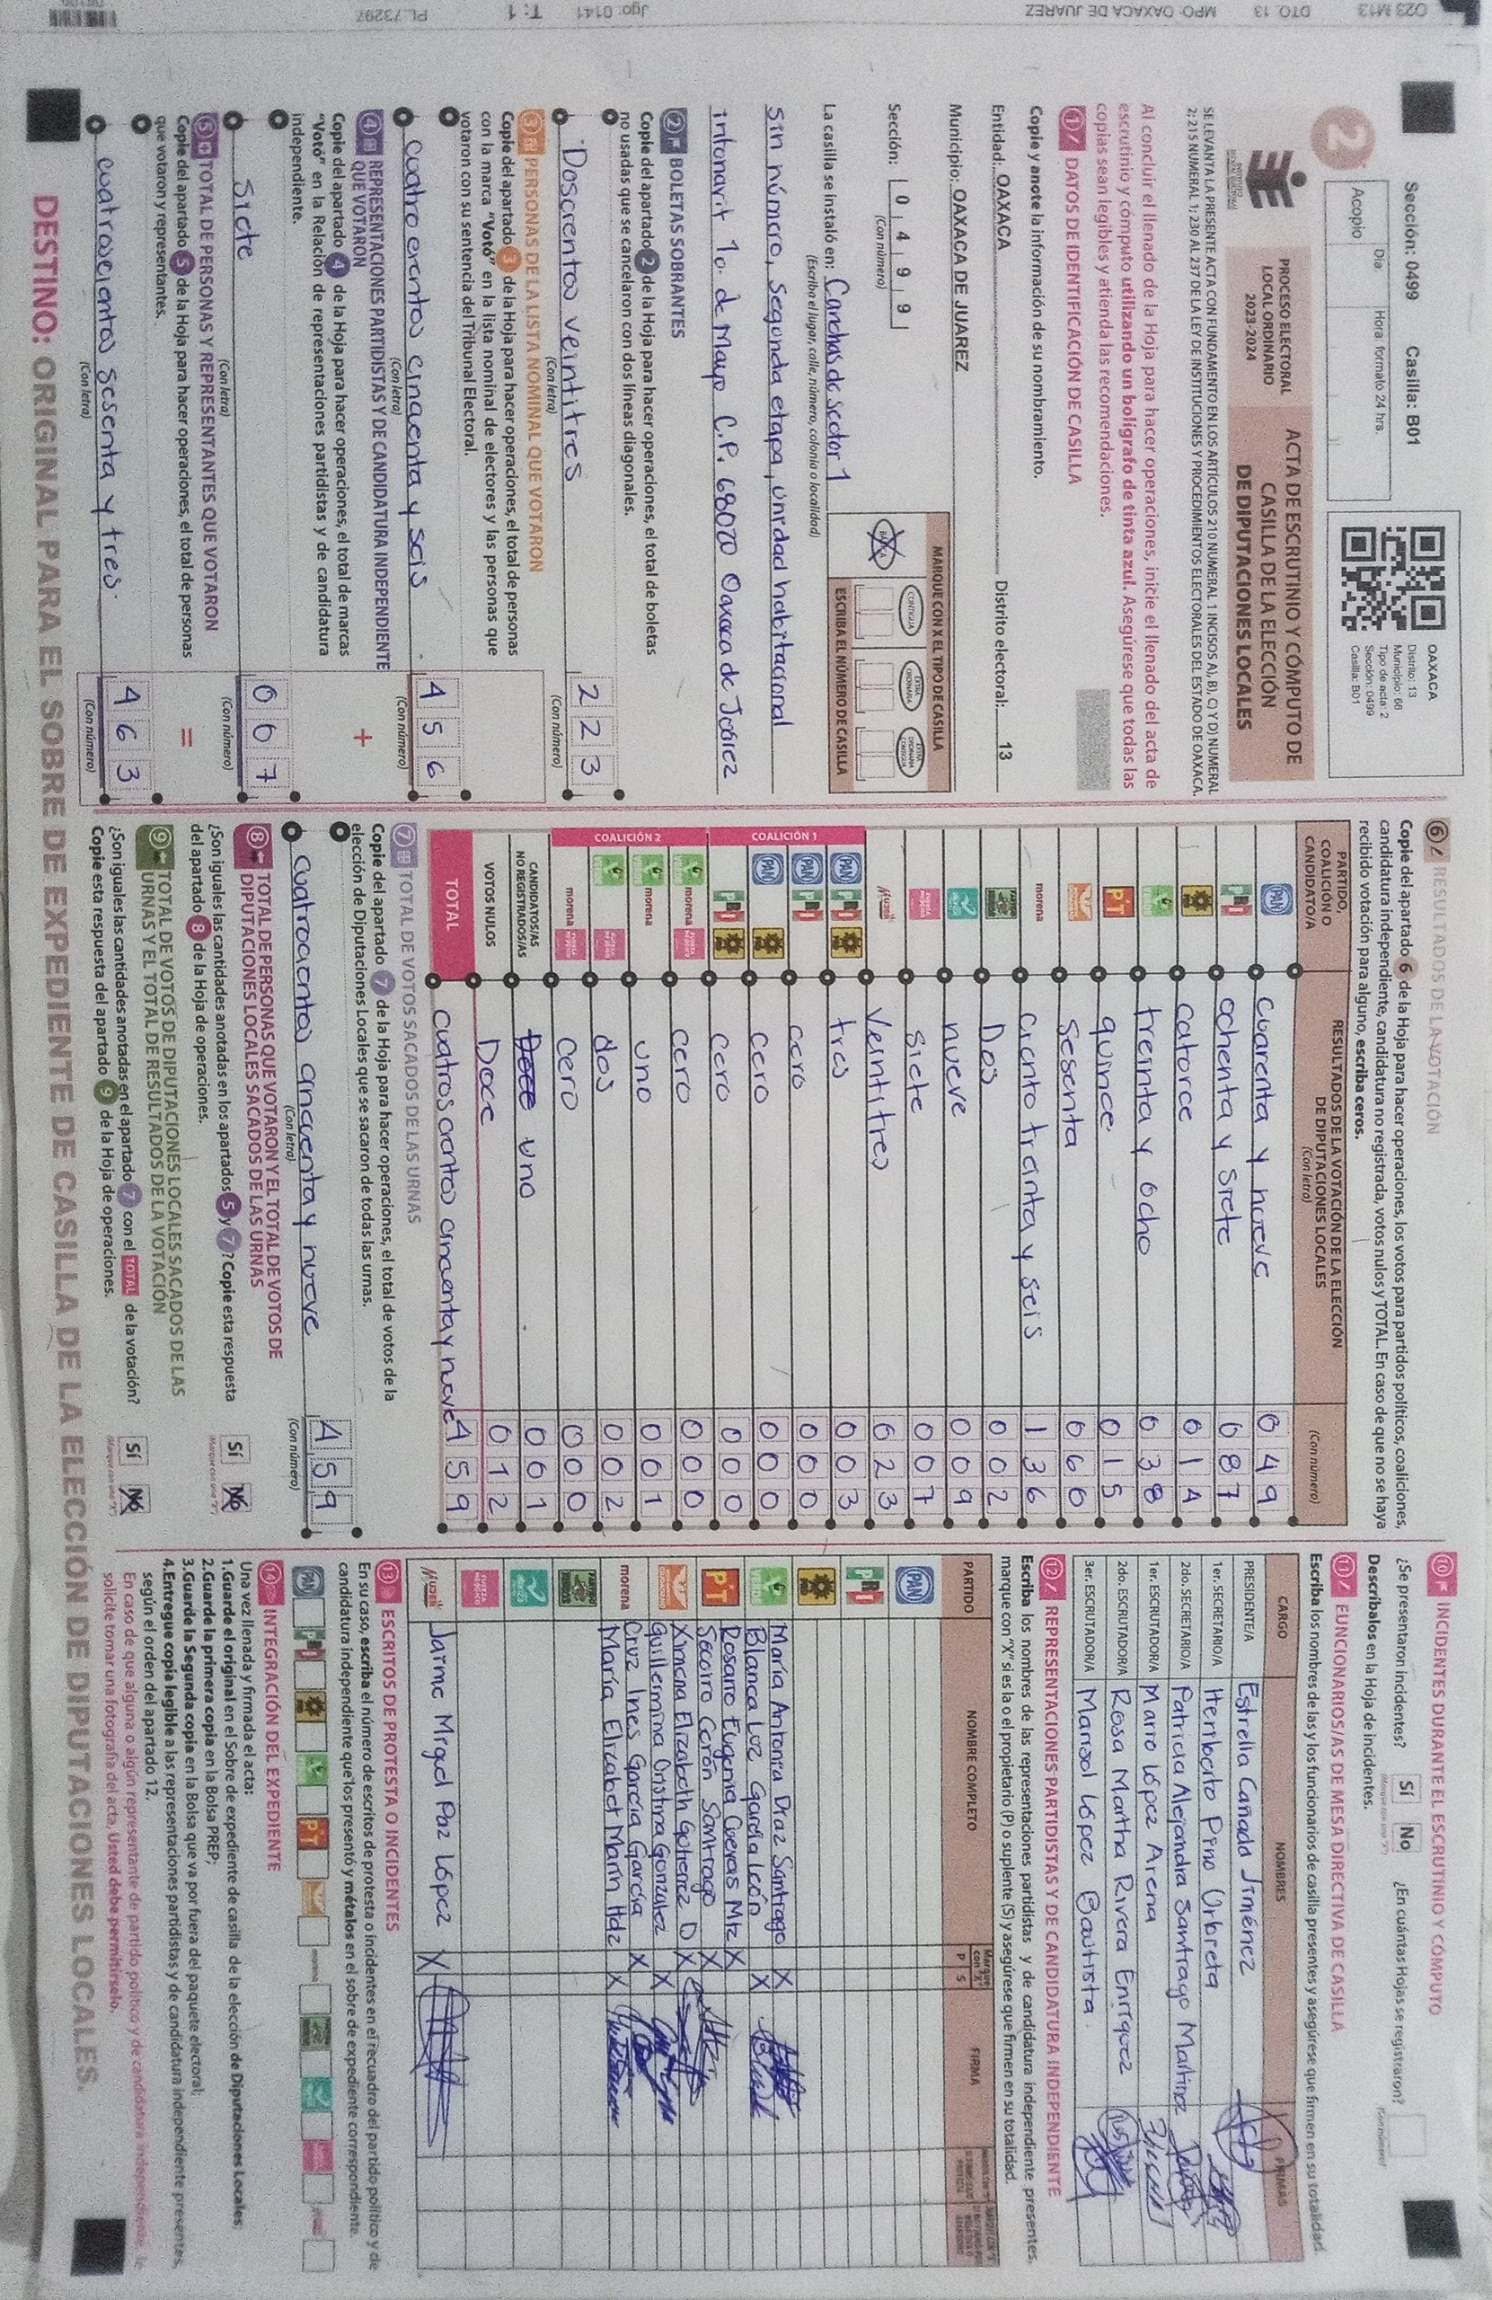 Sección: 0499 Casilla: B01
Día Hora: formato 24 hrs.
Acopio
OAXACA
Distrito: 13
Municipio: 66
Tipo de acta: 2
Sección: 0499
Casilla: B01
2
PROCESO ELECTORAL
LOCAL ORDINARIO
2023-2024
ACTA DE ESCRUTINIO Y CÓMPUTO DE
CASILLA DE LA ELECCIÓN
DE DIPUTACIONES LOCALES
SE LEVANTA LA PRESENTE ACTA CON FUNDAMENTO EN LOS ARTÍCULOS 210 NUMERAL 1 INCISOS A), B), C) Y D) NUMERAL
2; 215 NUMERAL 1; 230 AL 237 DE LA LEY DE INSTITUCIONES Y PROCEDIMIENTOS ELECTORALES DEL ESTADO DE OAXACA.
Al concluir el llenado de la Hoja para hacer operaciones, inicie el llenado del acta de
escrutinio y cómputo utilizando un bolígrafo de tinta azul. Asegúrese que todas las
copias sean legibles y atienda las recomendaciones.
1 DATOS DE IDENTIFICACIÓN DE CASILLA
Copie y anote la información de su nombramiento.
Entidad: OAXACA Distrito electoral: 13
Municipio: OAXACA DE JUAREZ
Sección: 0 4 9 9
(Con número)
MARQUE CON X EL TIPO DE CASILLA
ESCRIBA EL NÚMERO DE CASILLA
La casilla se instaló en: Canchas de sector 1
(Escriba el lugar, calle, número, colonia o localidad)
sin número, segunda etapa, unidad habitacional
infonavit 1o. de Mayo C.P. 68020 Oaxaca de Juárez
2 BOLETAS SOBRANTES
Copie del apartado 2 de la Hoja para hacer operaciones, el total de boletas
no usadas que se cancelaron con dos líneas diagonales.
Doscientos veintitres 2 2 3
(Con letra) (Con número)
3 PERSONAS DE LA LISTA NOMINAL QUE VOTARON
Copie del apartado 3 de la Hoja para hacer operaciones, el total de personas
con la marca "Votó" en la lista nominal de electores y las personas que
votaron con su sentencia del Tribunal Electoral.
cuatrocientos cincuenta y seis 4 5 6
(Con letra) (Con número)
4 REPRESENTACIONES PARTIDISTAS Y DE CANDIDATURA INDEPENDIENTE
QUE VOTARON
Copie del apartado 4 de la Hoja para hacer operaciones, el total de marcas
"Votó" en la Relación de representaciones partidistas y de candidatura
independiente.
+
Siete 0 0 7
(Con letra) (Con número)
5 TOTAL DE PERSONAS Y REPRESENTANTES QUE VOTARON
Copie del apartado 5 de la Hoja para hacer operaciones, el total de personas
que votaron y representantes.
=
cuatroscientos sesenta y tres. 4 6 3
(Con letra) (Con número)
6 RESULTADOS DE LA VOTACIÓN
Copie del apartado 6 de la Hoja para hacer operaciones, los votos para partidos políticos, coaliciones,
candidatura independiente, candidatura no registrada, votos nulos y TOTAL. En caso de que no se haya
recibido votación para alguno, escriba ceros.
PARTIDO,
COALICIÓN O
CANDIDATO/A
RESULTADOS DE LA VOTACIÓN DE LA ELECCIÓN
DE DIPUTACIONES LOCALES
(Con letra) (Con número)
PAN cuarenta y nueve 0 4 9
PRI ochenta y siete 0 8 7
PRD catorce 0 1 4
VERDE treinta y ocho 0 3 8
PT quince 0 1 5
sesenta 0 6 0
morena ciento treinta y seis 1 3 6
Dos 0 0 2
nueve 0 0 9
siete 0 0 7
Veintitres 0 2 3
COALICIÓN 1
PAN PRI PRD tres 0 0 3
PAN PRI cero 0 0 0
PAN PRD cero 0 0 0
PRI PRD cero 0 0 0
COALICIÓN 2
VERDE morena cero 0 0 0
VERDE morena uno 0 0 1
VERDE dos 0 0 2
morena cero 0 0 0
CANDIDATOS/AS
NO REGISTRADOS/AS uno 0 0 1
VOTOS NULOS Doce 0 1 2
TOTAL cuatroscientos cincuenta y nueve 4 5 9
7 TOTAL DE VOTOS SACADOS DE LAS URNAS
Copie del apartado 7 de la Hoja para hacer operaciones, el total de votos de la
elección de Diputaciones Locales que se sacaron de todas las urnas.
cuatrocientos cincuenta y nueve 4 5 9
(Con letra) (Con número)
8 TOTAL DE PERSONAS QUE VOTARON Y EL TOTAL DE VOTOS DE
DIPUTACIONES LOCALES SACADOS DE LAS URNAS
¿Son iguales las cantidades anotadas en los apartados 5 y 7? Copie esta respuesta
del apartado 8 de la Hoja de operaciones.
Sí No
9 TOTAL DE VOTOS DE DIPUTACIONES LOCALES SACADOS DE LAS
URNAS Y EL TOTAL DE RESULTADOS DE LA VOTACIÓN
¿Son iguales las cantidades anotadas en el apartado 7 con el TOTAL de la votación?
Copie esta respuesta del apartado 9 de la Hoja de operaciones.
Sí No
10 INCIDENTES DURANTE EL ESCRUTINIO Y CÓMPUTO
¿Se presentaron incidentes? Sí No ¿En cuántas Hojas se registraron?
Descríbalos en la Hoja de incidentes.
11 FUNCIONARIOS/AS DE MESA DIRECTIVA DE CASILLA
Escriba los nombres de las y los funcionarios de casilla presentes y asegúrese que firmen en su totalidad.
CARGO NOMBRES FIRMAS
PRESIDENTE/A Estrella Cañada Jiménez
1er. SECRETARIO/A Heriberto Pino Urbieta
2do. SECRETARIO/A Patricia Alejandra Santiago Martínez
1er. ESCRUTADOR/A Mario López Arena
2do. ESCRUTADOR/A Rosa Martha Rivera Enríquez
3er. ESCRUTADOR/A Marisol López Bautista
12 REPRESENTACIONES PARTIDISTAS Y DE CANDIDATURA INDEPENDIENTE
Escriba los nombres de las representaciones partidistas y de candidatura independiente presentes,
marque con "X" si es la o el propietario (P) o suplente (S) y asegúrese que firmen en su totalidad.
PARTIDO NOMBRE COMPLETO Marque con "X" P S FIRMA
PAN
PRI
María Antonia Díaz Santiago X
Blanca Luz García León X
Rosario Eugenia Cuevas Mtz X
Socorro Cerón Santiago X
Ximena Elizabeth Gutierrez D X
Guillermina Cristina Gonzalez X
Cruz Ines García García X
María Elizabet Marín Hdz X
Jaime Miguel Paz López X
13 ESCRITOS DE PROTESTA O INCIDENTES
En su caso, escriba el número de escritos de protesta o incidentes en el recuadro del partido político y de
candidatura independiente que los presentó y métalos en el sobre de expediente correspondiente.
14 INTEGRACIÓN DEL EXPEDIENTE
Una vez llenada y firmada el acta:
1.Guarde el original en el Sobre de expediente de casilla de la elección de Diputaciones Locales;
2.Guarde la primera copia en la Bolsa PREP;
3.Guarde la Segunda copia en la Bolsa que va por fuera del paquete electoral;
4.Entregue copia legible a las representaciones partidistas y de candidatura independiente presentes,
según el orden del apartado 12.
En caso de que alguna o algún representante de partido político y de candidatura independiente, le
solicite tomar una fotografía del acta, Usted debe permitírselo.
DESTINO: ORIGINAL PARA EL SOBRE DE EXPEDIENTE DE CASILLA DE LA ELECCIÓN DE DIPUTACIONES LOCALES.
023 M13 DTO. 13 MPO. OAXACA DE JUAREZ Jgo: 0141 T: 1 PL 73297